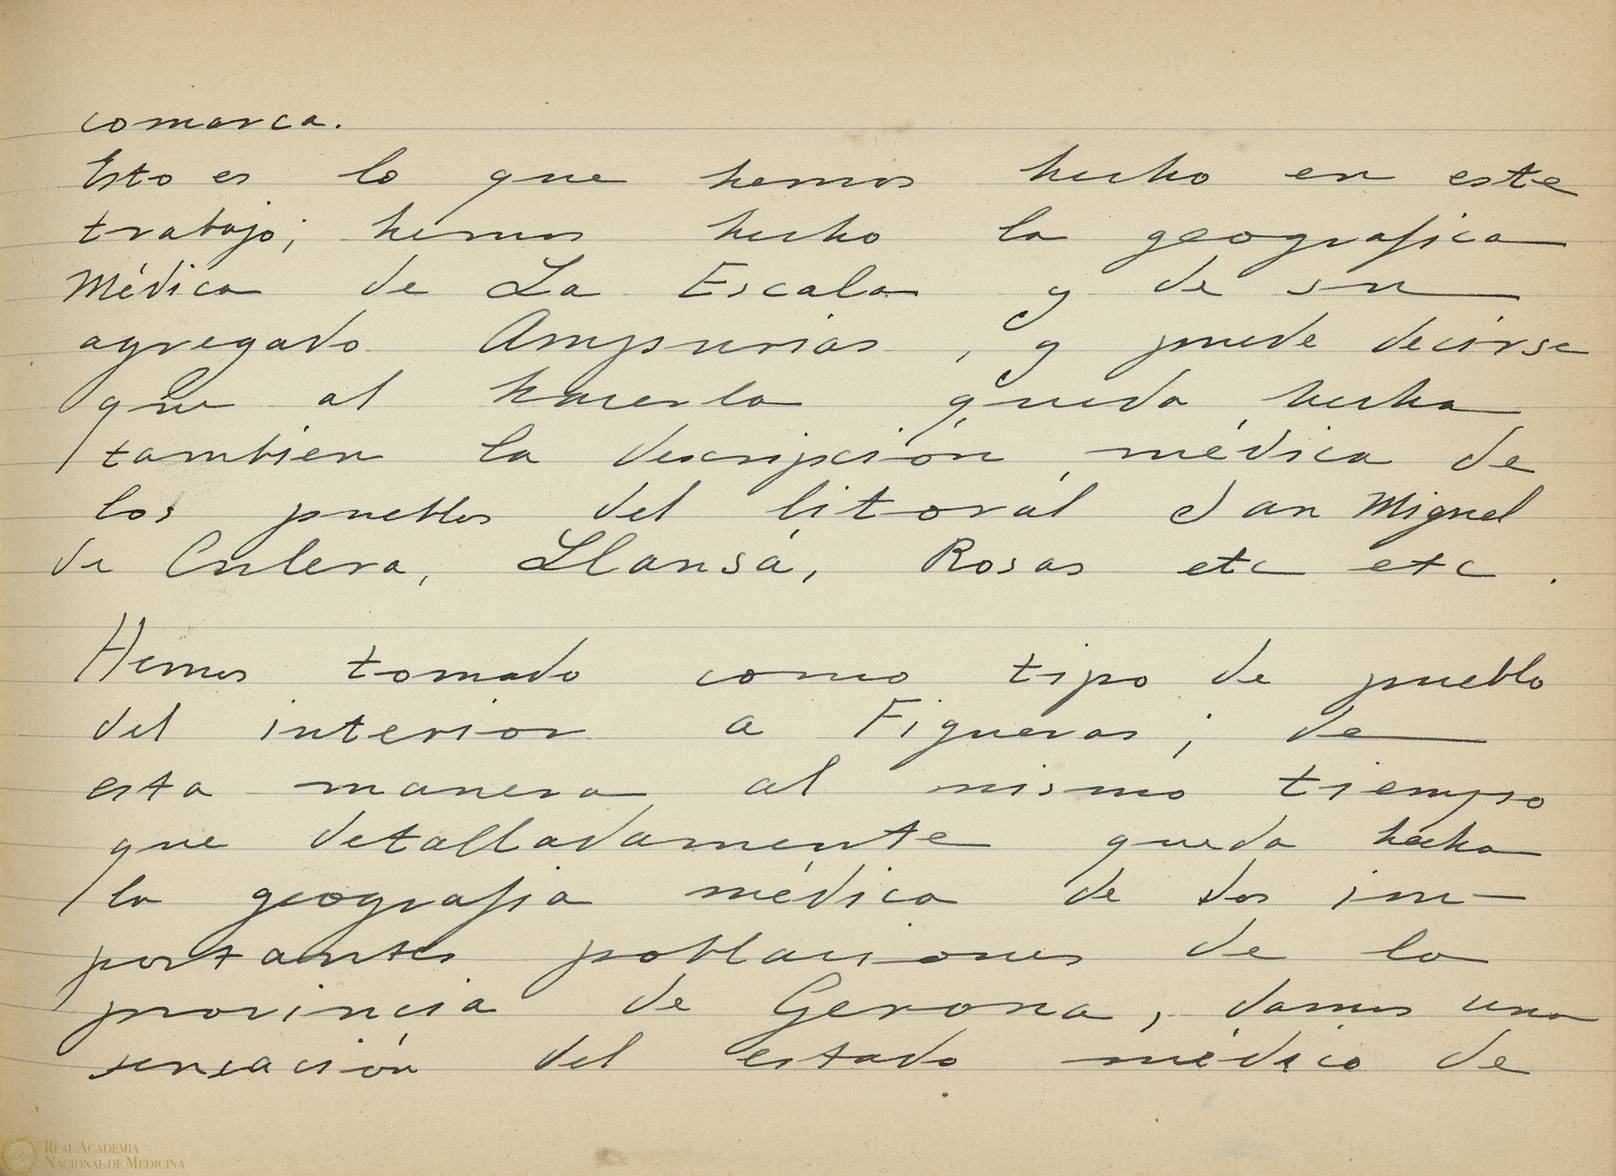 comarca.
Esto es lo que hemos hecho en este
trabajo; hemos hecho la geografica
Médica de La Escala y de su
agregado Ampurias, y puede decirse
que al hacerla queda hecha
tambien la descripción médica de
los pueblos del litorál San Miguel
de Culera, Llansá, Rosas etc etc.
Hemos tomado como tipo de pueblo
del interior a Figueras; de
esta manera al mismo tiempo
que detalladamente queda hecha
la geografia médica de dos im-
portantes poblaciones de la
provincia de Gerona, damos una
sensación del estado médico de
REAL ACADEMIA
NACIONAL DE MEDICINA